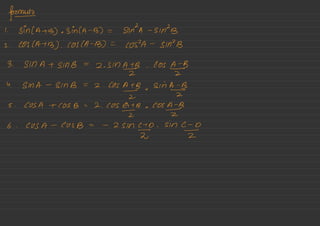 formulas
1. Sin(A+B) . Sin(A-B) = Sin²A - Sin²B
2. Cos(A+B) . Cos(A-B) = Cos²A - Sin²B
3. Sin A + Sin B = 2. Sin A+B/2 . Cos A-B/2
4. Sin A - Sin B = 2 Cos A+B/2 . Sin A-B/2
5. Cos A + Cos B = 2 Cos A+B/2 . Cos A-B/2
6. Cos A - Cos B = - 2 Sin C-D/2 . Sin C-D/2